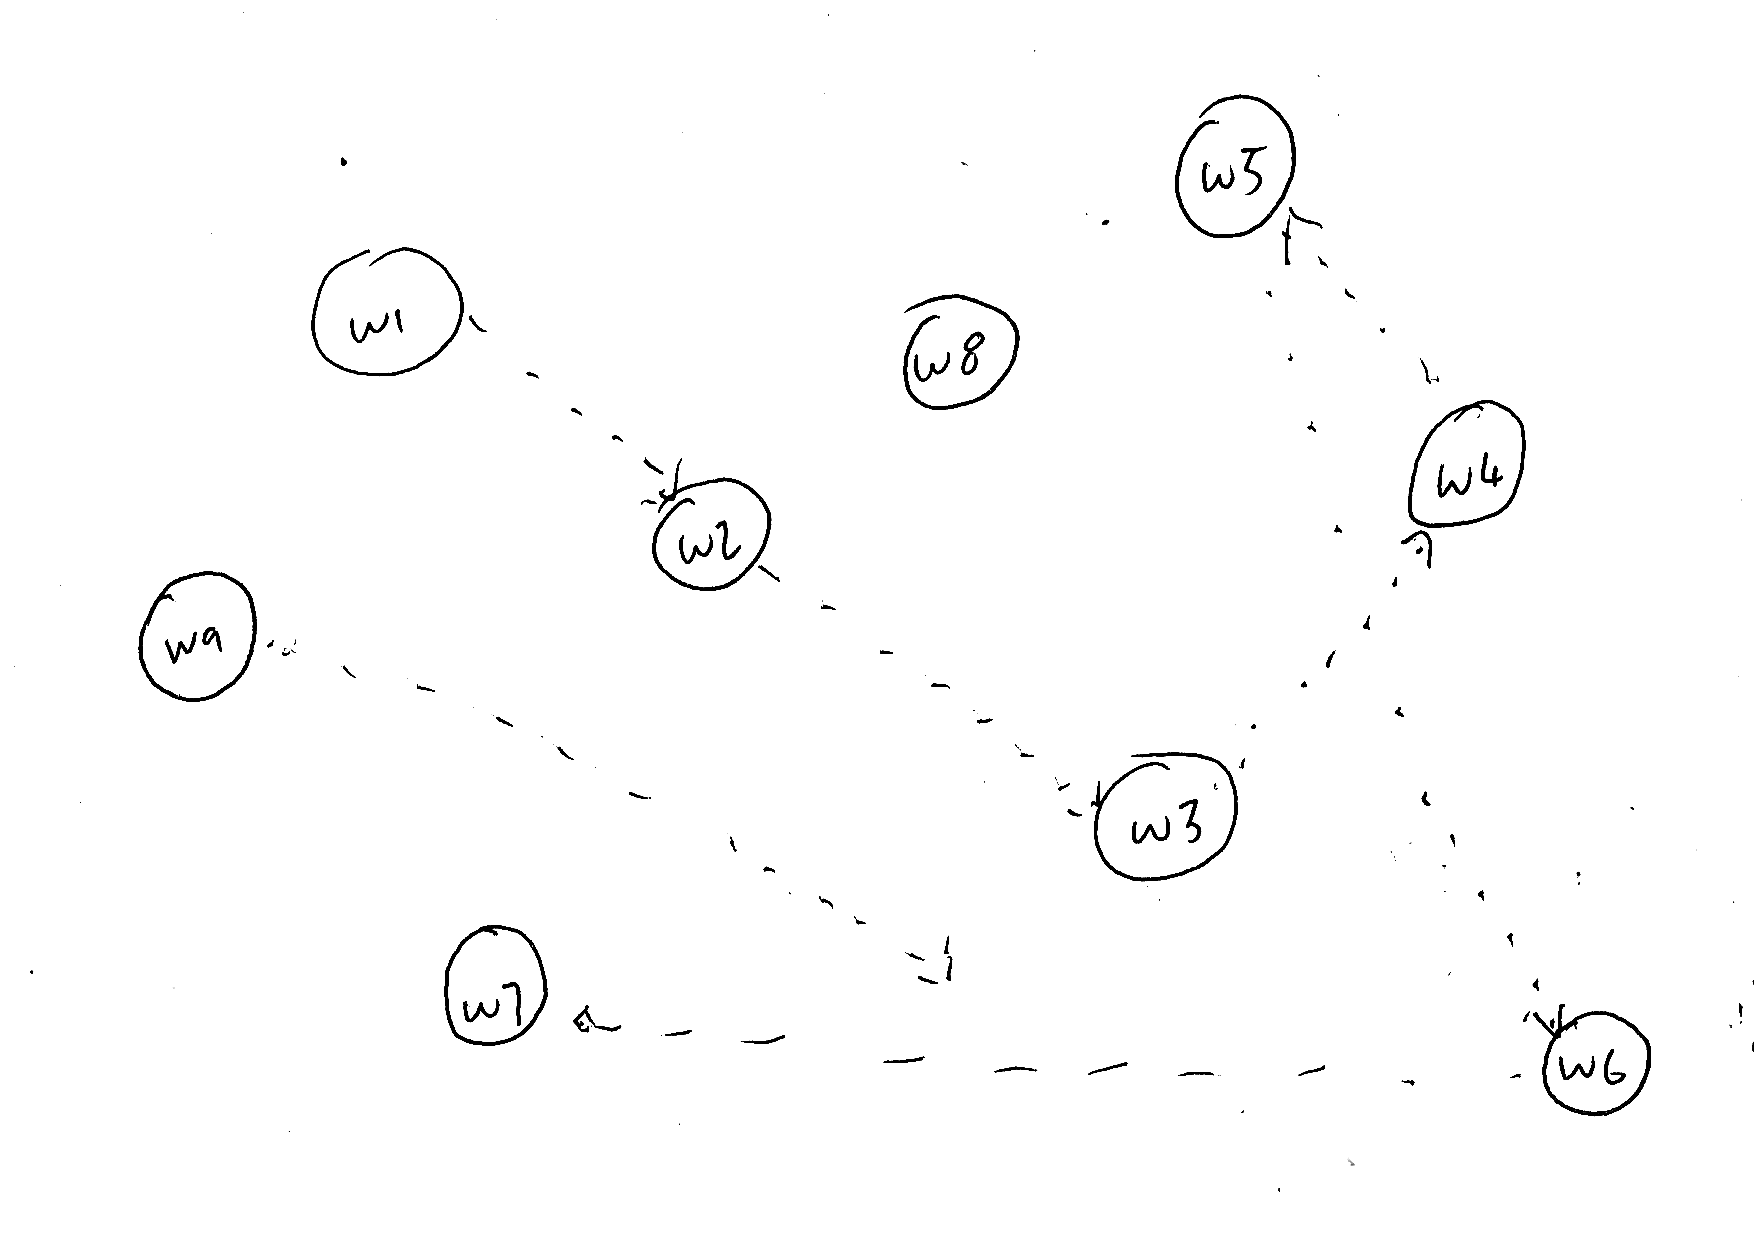 w5
w1
w8
w4
w2
w9
w3
w7
w6